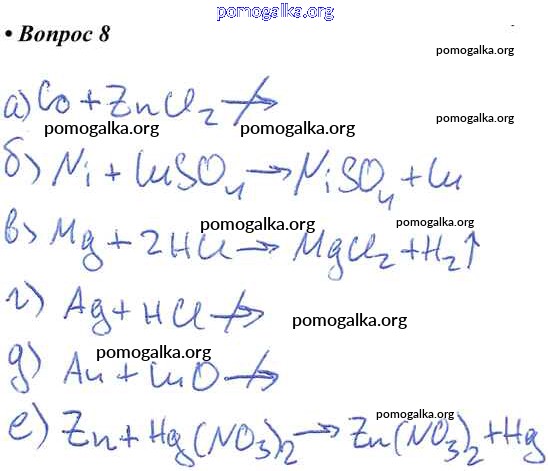 pomogalka.org
• Вопрос 8
pomogalka.org
а) Co + ZnCl₂ ↛
pomogalka.org
pomogalka.org pomogalka.org
б) Ni + CuSO₄ → NiSO₄ + Cu
pomogalka.org pomogalka.org
в) Mg + 2HCl → MgCl₂ + H₂↑
г) Ag + HCl ↛
pomogalka.org
pomogalka.org
д) Au + CuO ↛
pomogalka.org
е) Zn + Hg(NO₃)₂ → Zn(NO₃)₂ + Hg